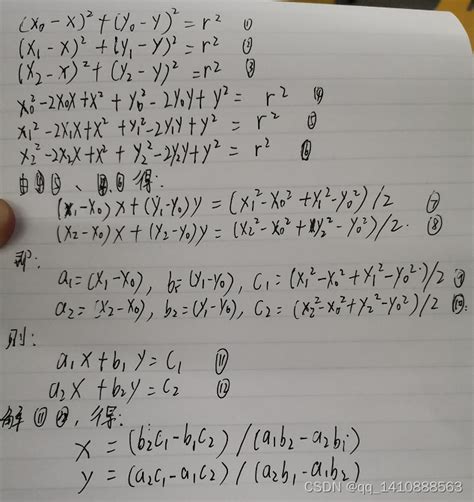 (x₀-x)²+(y₀-y)²=r² ①
(x₁-x)²+(y₁-y)²=r² ②
(x₂-x)²+(y₂-y)²=r² ③
x₀²-2x₀x+x²+y₀²-2y₀y+y²= r² ④
x₁²-2x₁x+x²+y₁²-2y₁y+y²= r² ⑤
x₂²-2x₂x+x²+y₂²-2y₂y+y²= r² ⑥
由④⑤、④⑥得:
(x₁-x₀)x+(y₁-y₀)y=(x₁²-x₀²+y₁²-y₀²)/2 ⑦
(x₂-x₀)x+(y₂-y₀)y=(x₂²-x₀²+y₂²-y₀²)/2. ⑧
a₁=(x₁-x₀), b=(y₁-y₀), c₁=(x₁²-x₀²+y₁²-y₀²)/2 ⑨
a₂=(x₂-x₀), b₂=(y₁-y₀), c₂=(x₂²-x₀²+y₂²-y₀²)/2 ⑩
则:
a₁x+b₁y=c₁ ⑪
a₂x+b₂y=c₂ ⑫
解⑪⑫,得:
x=(b₂c₁-b₁c₂)/(a₁b₂-a₂b₁)
y=(a₂c₁-a₁c₂)/(a₂b₁-a₁b₂)
CSDN @qq_1410888563